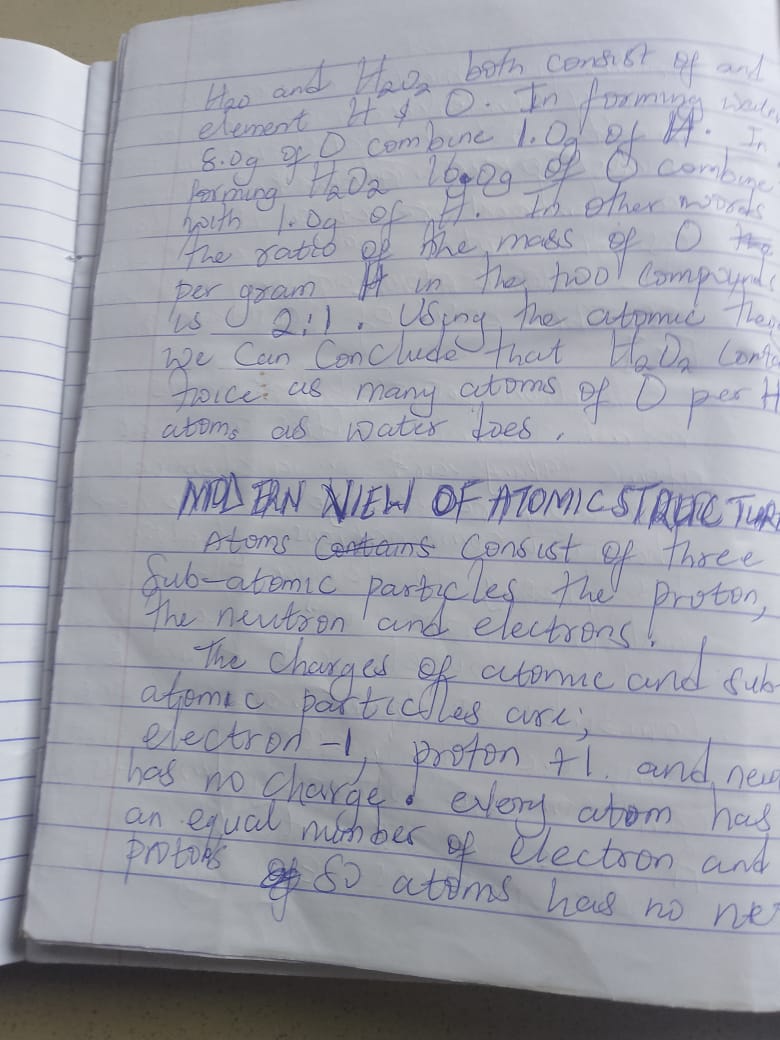 H2O and H2O2 both consist of and
element H & O. In forming
8.0g of O combine 1.0g of H. In
forming H2O2 16.0g of O combine
with 1.0g of H. In other words
the ratio of the mass of O
per gram H in the two compound
is 2:1. Using the atomic
we can conclude that H2O2
twice as many atoms of O per H
atoms as water does.
MODERN VIEW OF ATOMIC STRUCTUR
Atoms contains consist of three
Sub-atomic particles the proton,
the neutron and electrons.
The charges of atomic and sub-
atomic particles are;
electron -1, proton +1. and neu
has no charge. every atom has
an equal number of electron and
protons So atoms has no ne